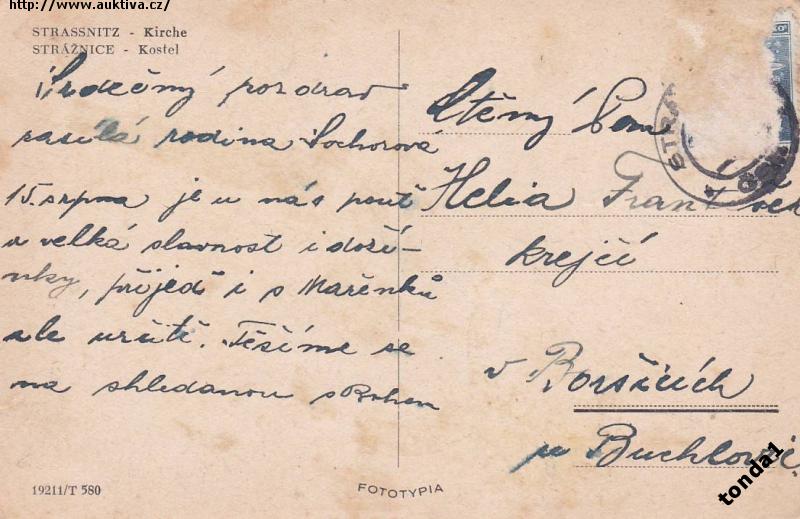 http://www.auktiva.cz/
STRASSNITZ - Kirche
STRÁŽNICE - Kostel
Srdečný pozdrav
zasílá rodina Sochorová
15. srpna je u nás pouť
a velká slavnost i doží-
nky, přijeď i s Mařenků
ale určitě. Těšíme se
na shledanou sBohem
Ctěný Pan
Helia František
krejčí
v Boršicích
u Buchlovic
19211/T 580
FOTOTYPIA
tonda1